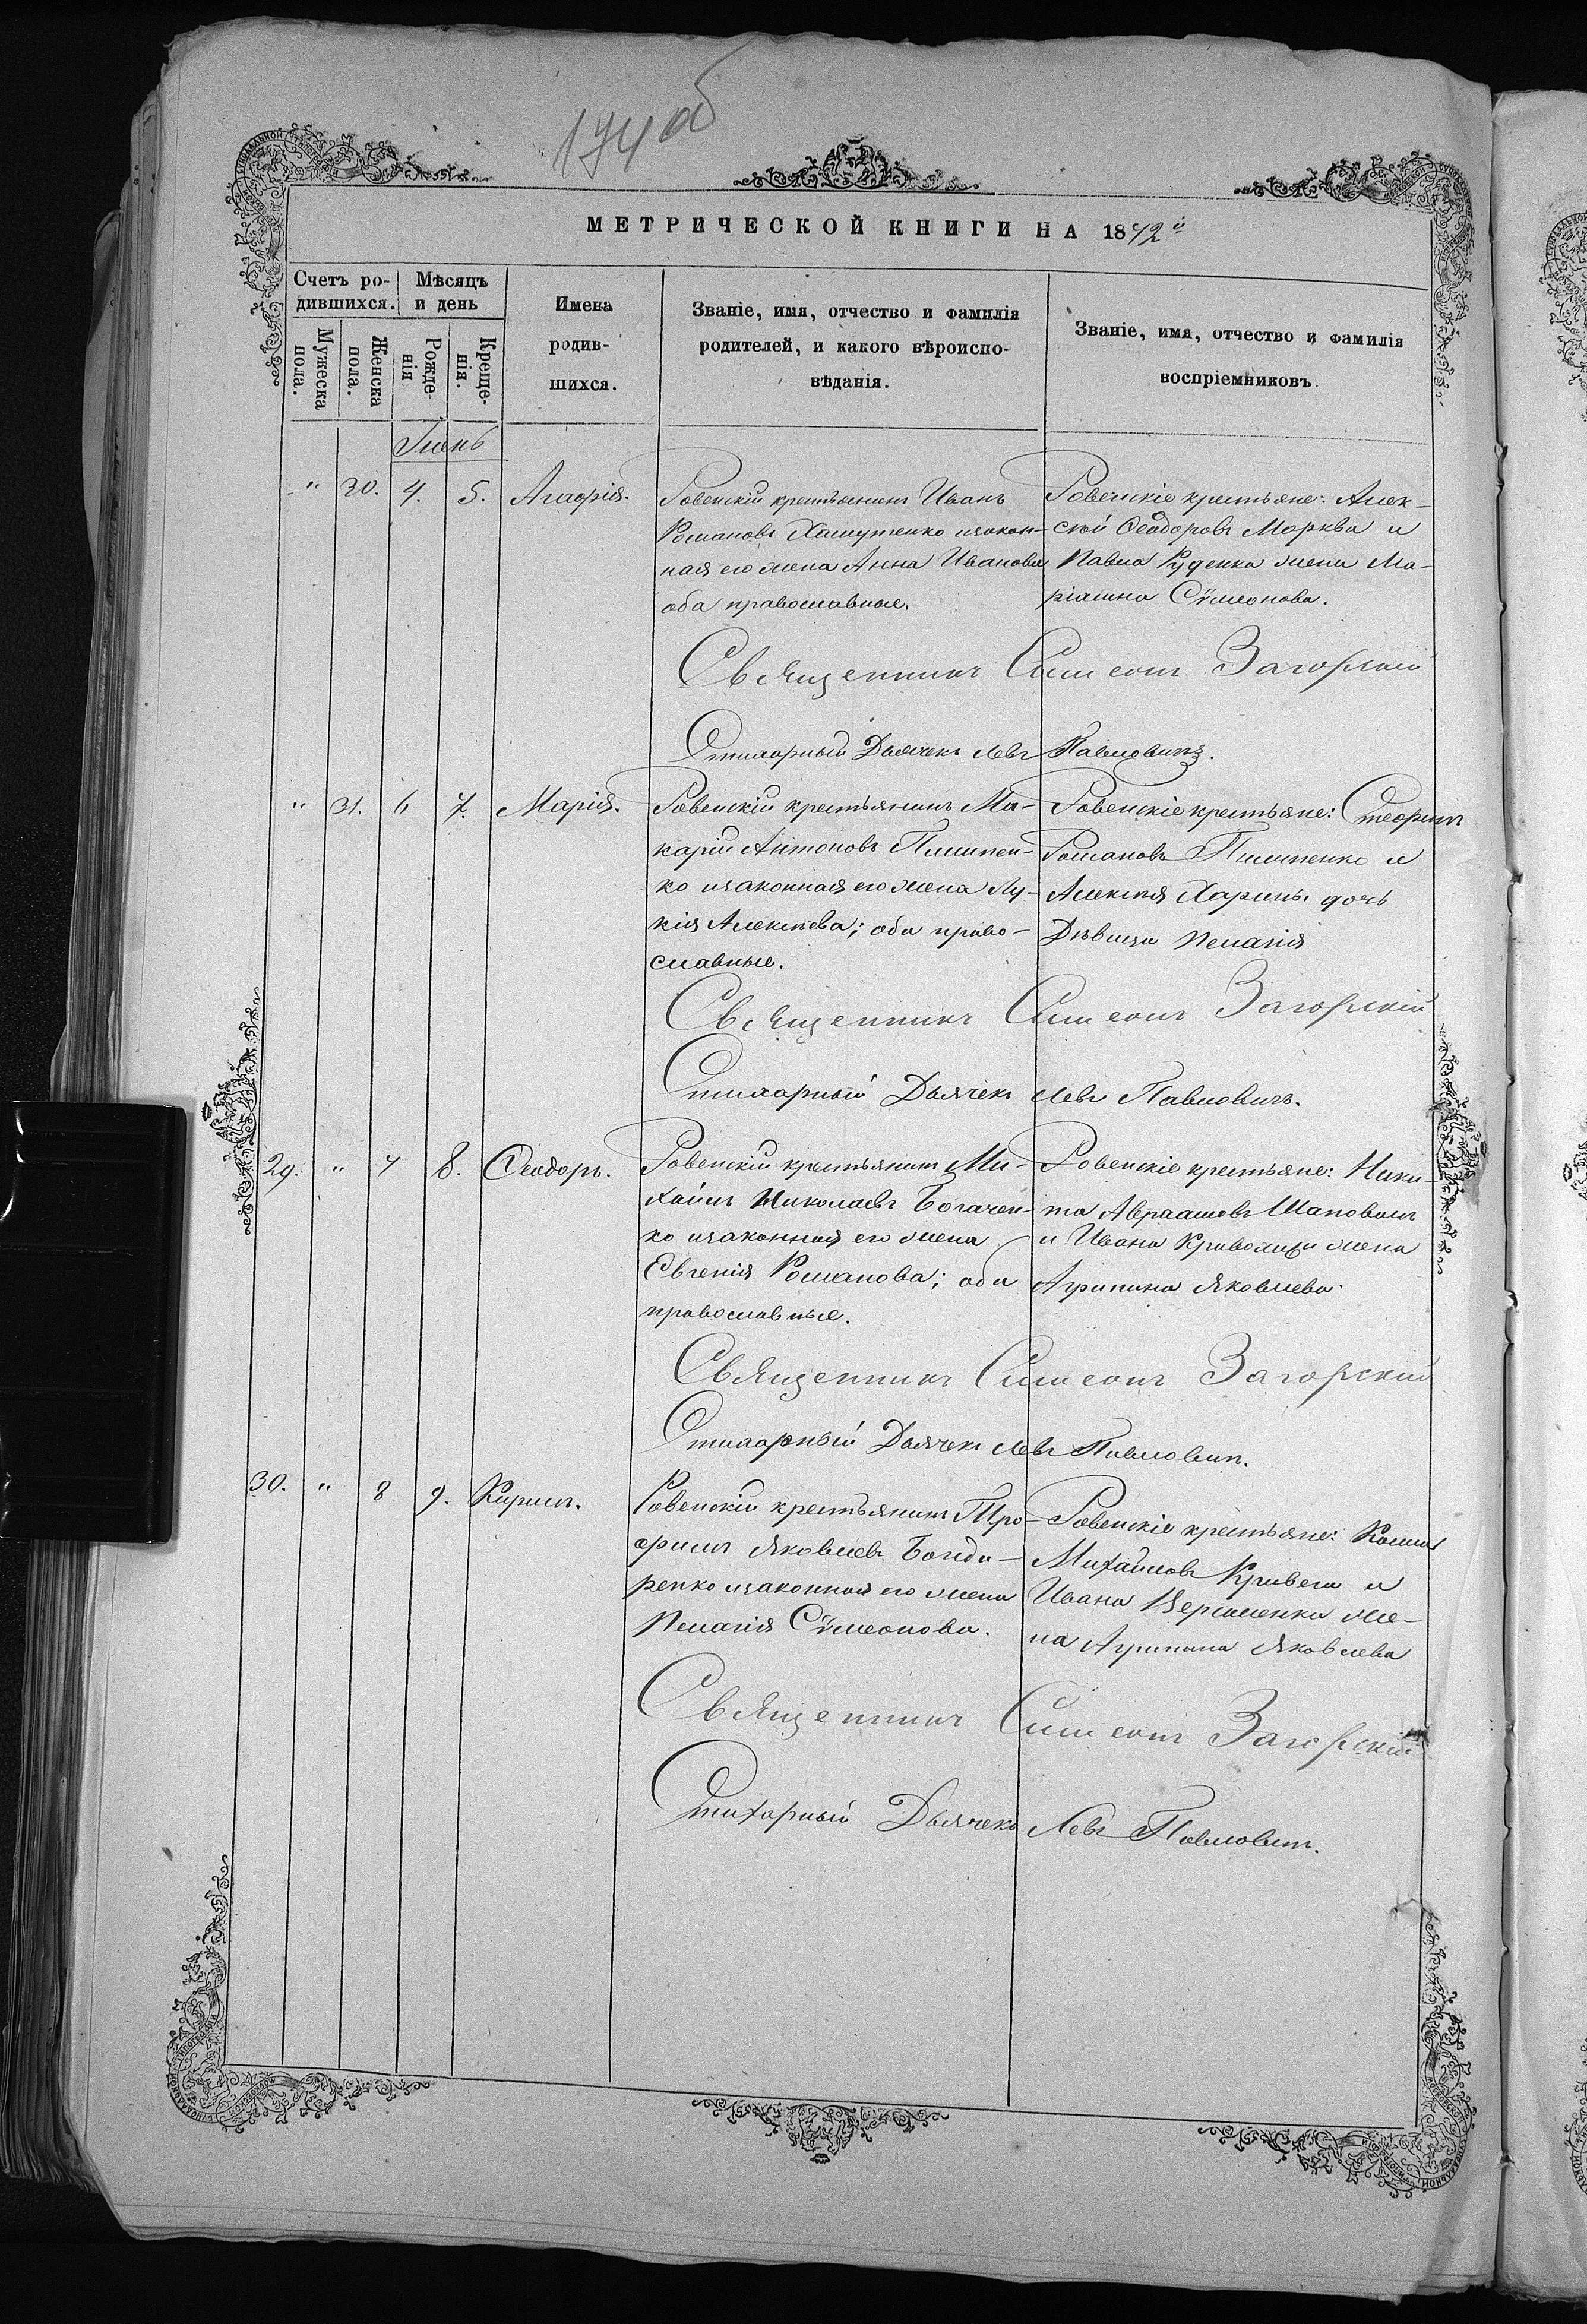 174 об
МЕТРИЧЕСКОЙ КНИГИ НА 1872 й
Счетъ ро-
дившихся.
Мѣсяцъ
и день
Имена
родив-
шихся.
Званіе, имя, отчество и фамилія
родителей, и какого вѣроиспо-
вѣданія.
Званіе, имя, отчество и фамилія
воспріемниковъ
Мужеска
пола.
Женска
пола.
Рожде-
нія
Креще-
нія.
Іюнь
" 30. 4. 5.
Ровенскій крестьянинъ Иванъ
Романовъ Хашутенко изакон-
ная его жена Анна Иванова
оба православные.
Ровенскіе крестьяне: Алек-
сѣй Ѳеодоровъ Морква и
Павла Руденка жена Ма-
ріянна Сѵмеонова.
Священникъ Симеонъ Загорскій
Стихарный Дьячекъ Левъ Павловичъ.
" 31. 6 7. Марія.
Ровенскій крестьянинъ Ма-
карій Антоновъ Пилипен-
ко изаконная его жена Лу-
кія Алексѣева; оба право-
славные.
Ровенскіе крестьяне:
Романовъ Пилипенко и
Алексѣя дочь
Дѣвица Пелагія
Священникъ Симеонъ Загорскій
Стихарный Дьячекъ Левъ Павловичъ.
29. " 7 8. Ѳеодоръ.
Ровенскій крестьянинъ Ми-
хаилъ Николаевъ Богачен-
ко изаконная его жена
Евгенія Романова; оба
православные.
Ровенскіе крестьяне: Ники-
та Авраамовъ Шаповалъ
и Ивана жена
Агрипина Яковлева.
Священникъ Симеонъ Загорскій
Стихарный Дьячекъ Левъ Павловичъ.
30. " 8 9. Кирилъ.
Ровенскій крестьянинъ Тро-
фимъ Яковлевъ Бонда-
ренко изаконная его жена
Пелагія Сѵмеонова.
Ровенскіе крестьяне:
Михайловъ и
Ивана же-
на Агрипина Яковлева
Священникъ Симеонъ Загорскій
Стихарный Дьячекъ Левъ Павловичъ.